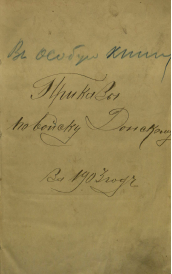 Въ особую книгу
Приказы
по войску Донскому
въ 1903 годъ